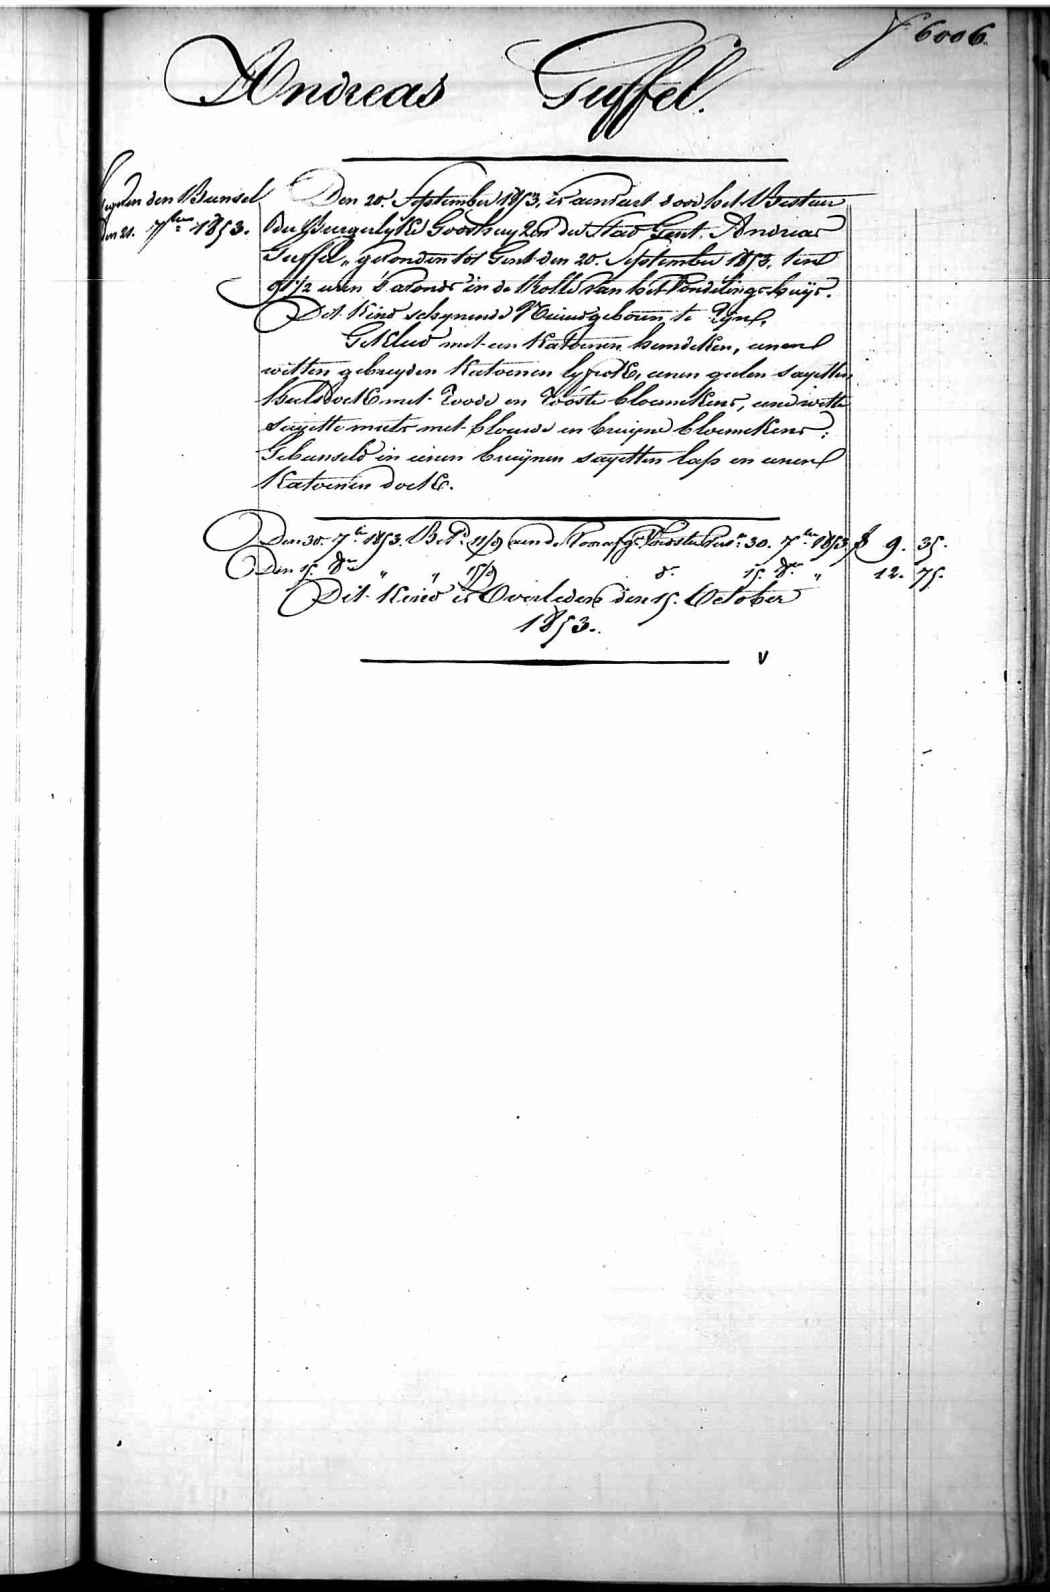 f° 6006.
Andreas Guffel.
Gegeven den Bunsel
den 21. 7ber 1853.
Den 20. September 1853, is aenvaert door het Bestuer
der Burgerlyke Godshuyzen der Stad Gent. Andreas
Guffel, gevonden tot Gent den 20. September 1853, ten
9 1/2 uren 's avonds in de Rolle van het Vondelingshuys.
Dit Kind schynende Nieuwgeboren te Zyn,
Gekleed met een Katoenen hemdeken, eenen
witten gebreyden Katoenen lyfrok, eenen geelen sayetten
halsdoek met Roode en Rooste bloemekens, eene witte
sayette muts met blouwe en bruyne bloemekens;
Gebunseld in eenen bruynen sayetten lap en eenen
Katoenen doek.
Den 30. 7ber 1853. Bet. 11/9 aen de 30. 7ber 1853. f 9. 35.
Den 15. 8ber " " 15/9 d° 15. 8ber " 12. 75.
Dit Kind is Overleden den 15. October
1853.
V